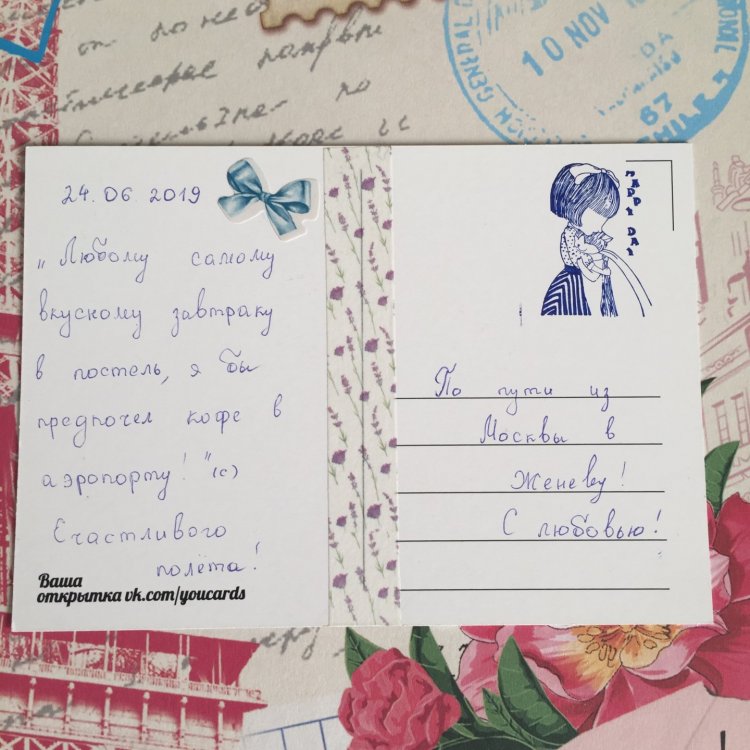 24.06.2019
„Любому самому
вкусному завтраку
в постель, я бы
предпочел кофе в
аэропорту! "(с)
Счастливого
полёта!
Ваша
открытка vk.com/youcards
HAPPY DAY
По пути из
Москвы в
Женеву!
С любовью!
10 NOV
67